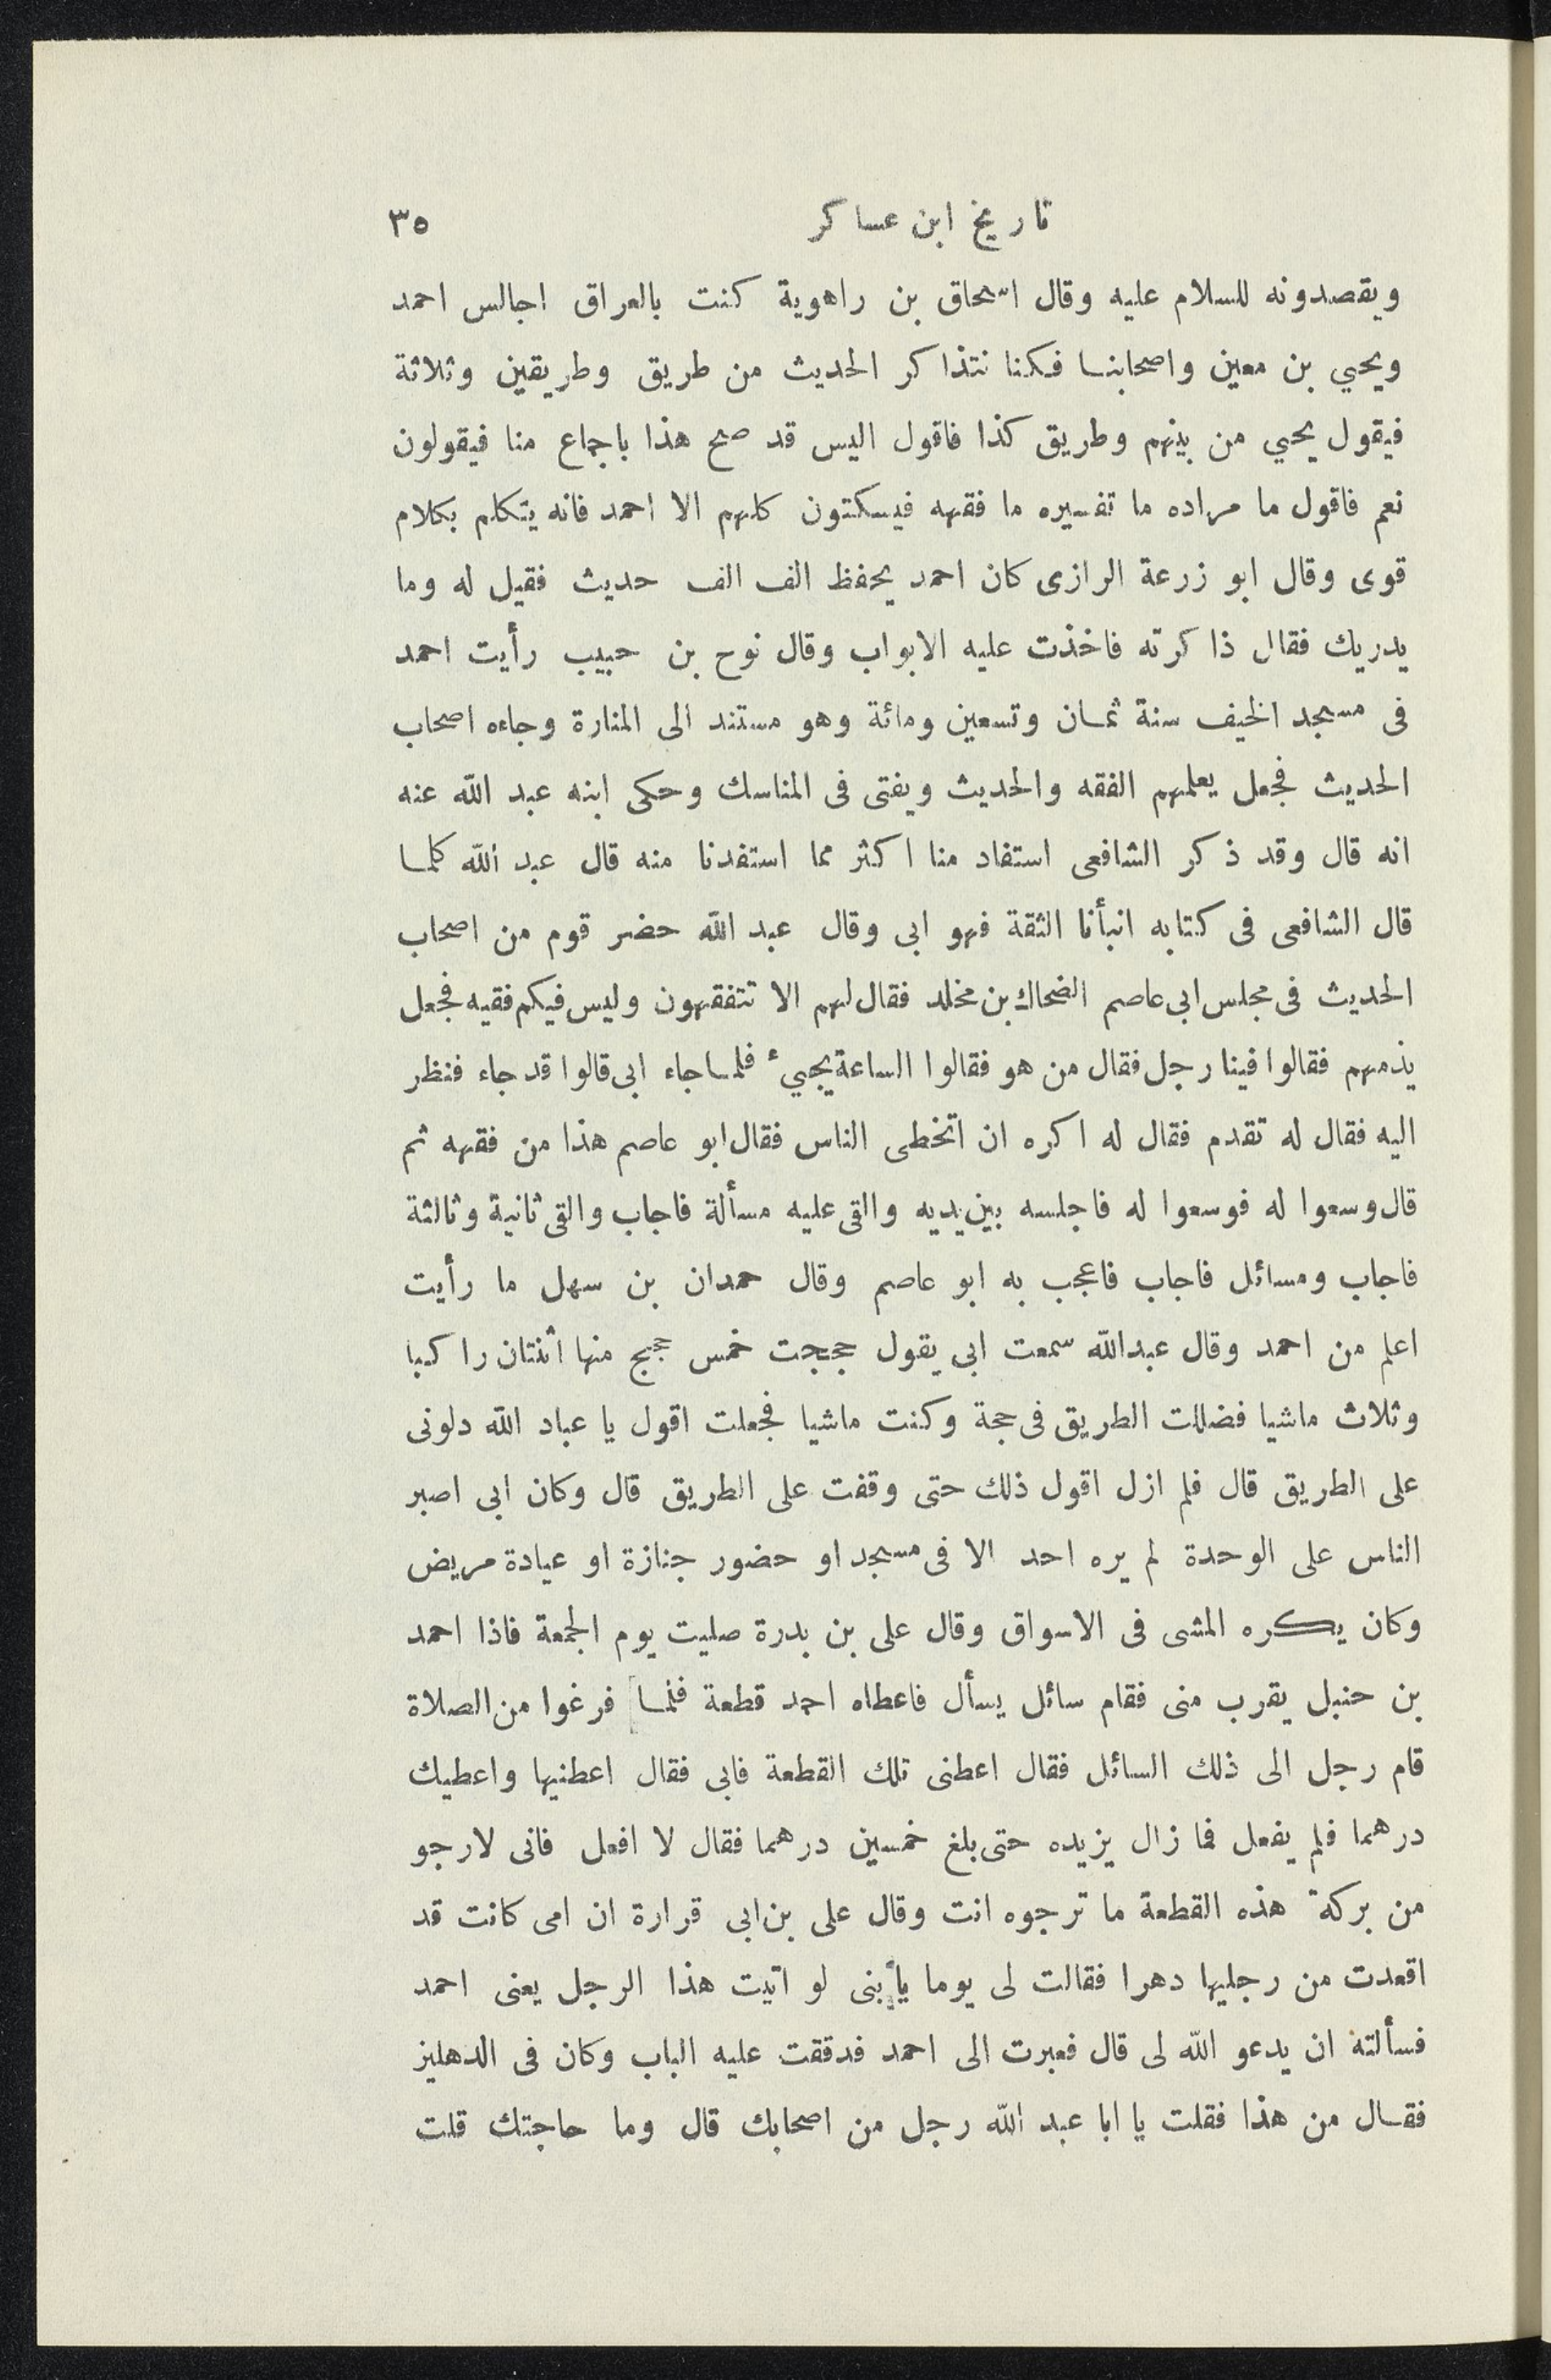 تاريخ ابن عساكر ٣٥
ويقصدونه للسلام عليه وقال اسحاق بن راهوية كنت بالعراق اجالس احمد
ويحيي بن معين واصحابنا فكنا نتذاكر الحديث من طريق وطريقين وثلاثة
فيقول يحيي من بينهم وطريق كذا فاقول اليس قد صح هذا باجماع منا فيقولون
نعم فاقول ما مراده ما تفسيره ما فقهه فيسكتون كلهم الا احمد فانه يتكلم بكلام
قوى وقال ابو زرعة الرازى كان احمد يحفظ الف الف حديث فقيل له وما
يدريك فقال ذاكرته فاخذت عليه الابواب وقال نوح بن حبيب رأيت احمد
فى مسجد الخيف سنة ثمان وتسعين ومائة وهو مستند الى المنارة وجاءه اصحاب
الحديث فجعل يعلمهم الفقه والحديث ويفتى فى المناسك وحكى ابنه عبد الله عنه
انه قال وقد ذكر الشافعى استفاد منا اكثر مما استفدنا منه قال عبد الله كلما
قال الشافعى فى كتابه انبأنا الثقة فهو ابى وقال عبد الله حضر قوم من اصحاب
الحديث فى مجلس ابى عاصم الضحاك بن مخلد فقال لهم الا تتفقهون وليس فيكم فقيه فجعل
يذمهم فقالوا فينا رجل فقال من هو فقالوا الساعة يجيء فلما جاء ابى قالوا قد جاء فنظر
اليه فقال له تقدم فقال له اكره ان اتخطى الناس فقال ابو عاصم هذا من فقهه ثم
قال وسعوا له فوسعوا له فاجلسه بين يديه والقى عليه مسألة فاجاب والقى ثانية وثالثة
فاجاب ومسائل فاجاب فاعجب به ابو عاصم وقال حمدان بن سهل ما رأيت
اعلم من احمد وقال عبدالله سمعت ابى يقول حججت خمس حجج منها اثنتان راكبا
وثلاث ماشيا فضللت الطريق فى حجة وكنت ماشيا فجعلت اقول يا عباد الله دلونى
على الطريق قال فلم ازل اقول ذلك حتى وقفت على الطريق قال وكان ابى اصبر
الناس على الوحدة لم يره احد الا فى مسجد او حضور جنازة او عيادة مريض
وكان يكره المشى فى الاسواق وقال على بن بدرة صليت يوم الجمعة فاذا احمد
بن حنبل يقرب منى فقام سائل يسأل فاعطاه احمد قطعة فلما فرغوا من الصلاة
قام رجل الى ذلك السائل فقال اعطنى تلك القطعة فابى فقال اعطنيها واعطيك
درهما فلم يفعل فما زال يزيده حتى بلغ خمسين درهما فقال لا افعل فانى لارجو
من بركة هذه القطعة ما ترجوه انت وقال على بن ابى قرارة ان امى كانت قد
اقعدت من رجليها دهرا فقالت لى يوما يا بنى لو اتيت هذا الرجل يعنى احمد
فسألته ان يدعو الله لى قال فعبرت الى احمد فدققت عليه الباب وكان فى الدهليز
فقال من هذا فقلت يا ابا عبد الله رجل من اصحابك قال وما حاجتك قلت